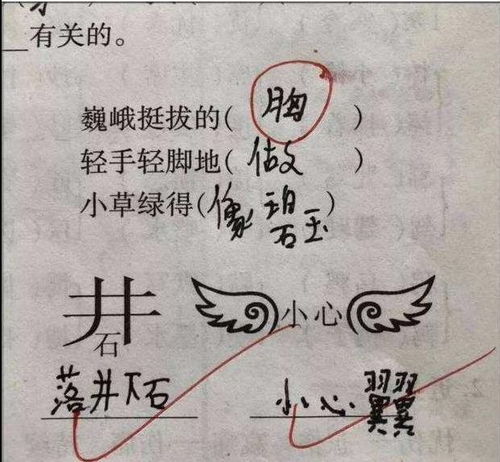 有关的。
巍峨挺拔的( 胸 )
轻手轻脚地( 做 )
小草绿得(像碧玉)
井
石
小心
落井下石
小心翼翼